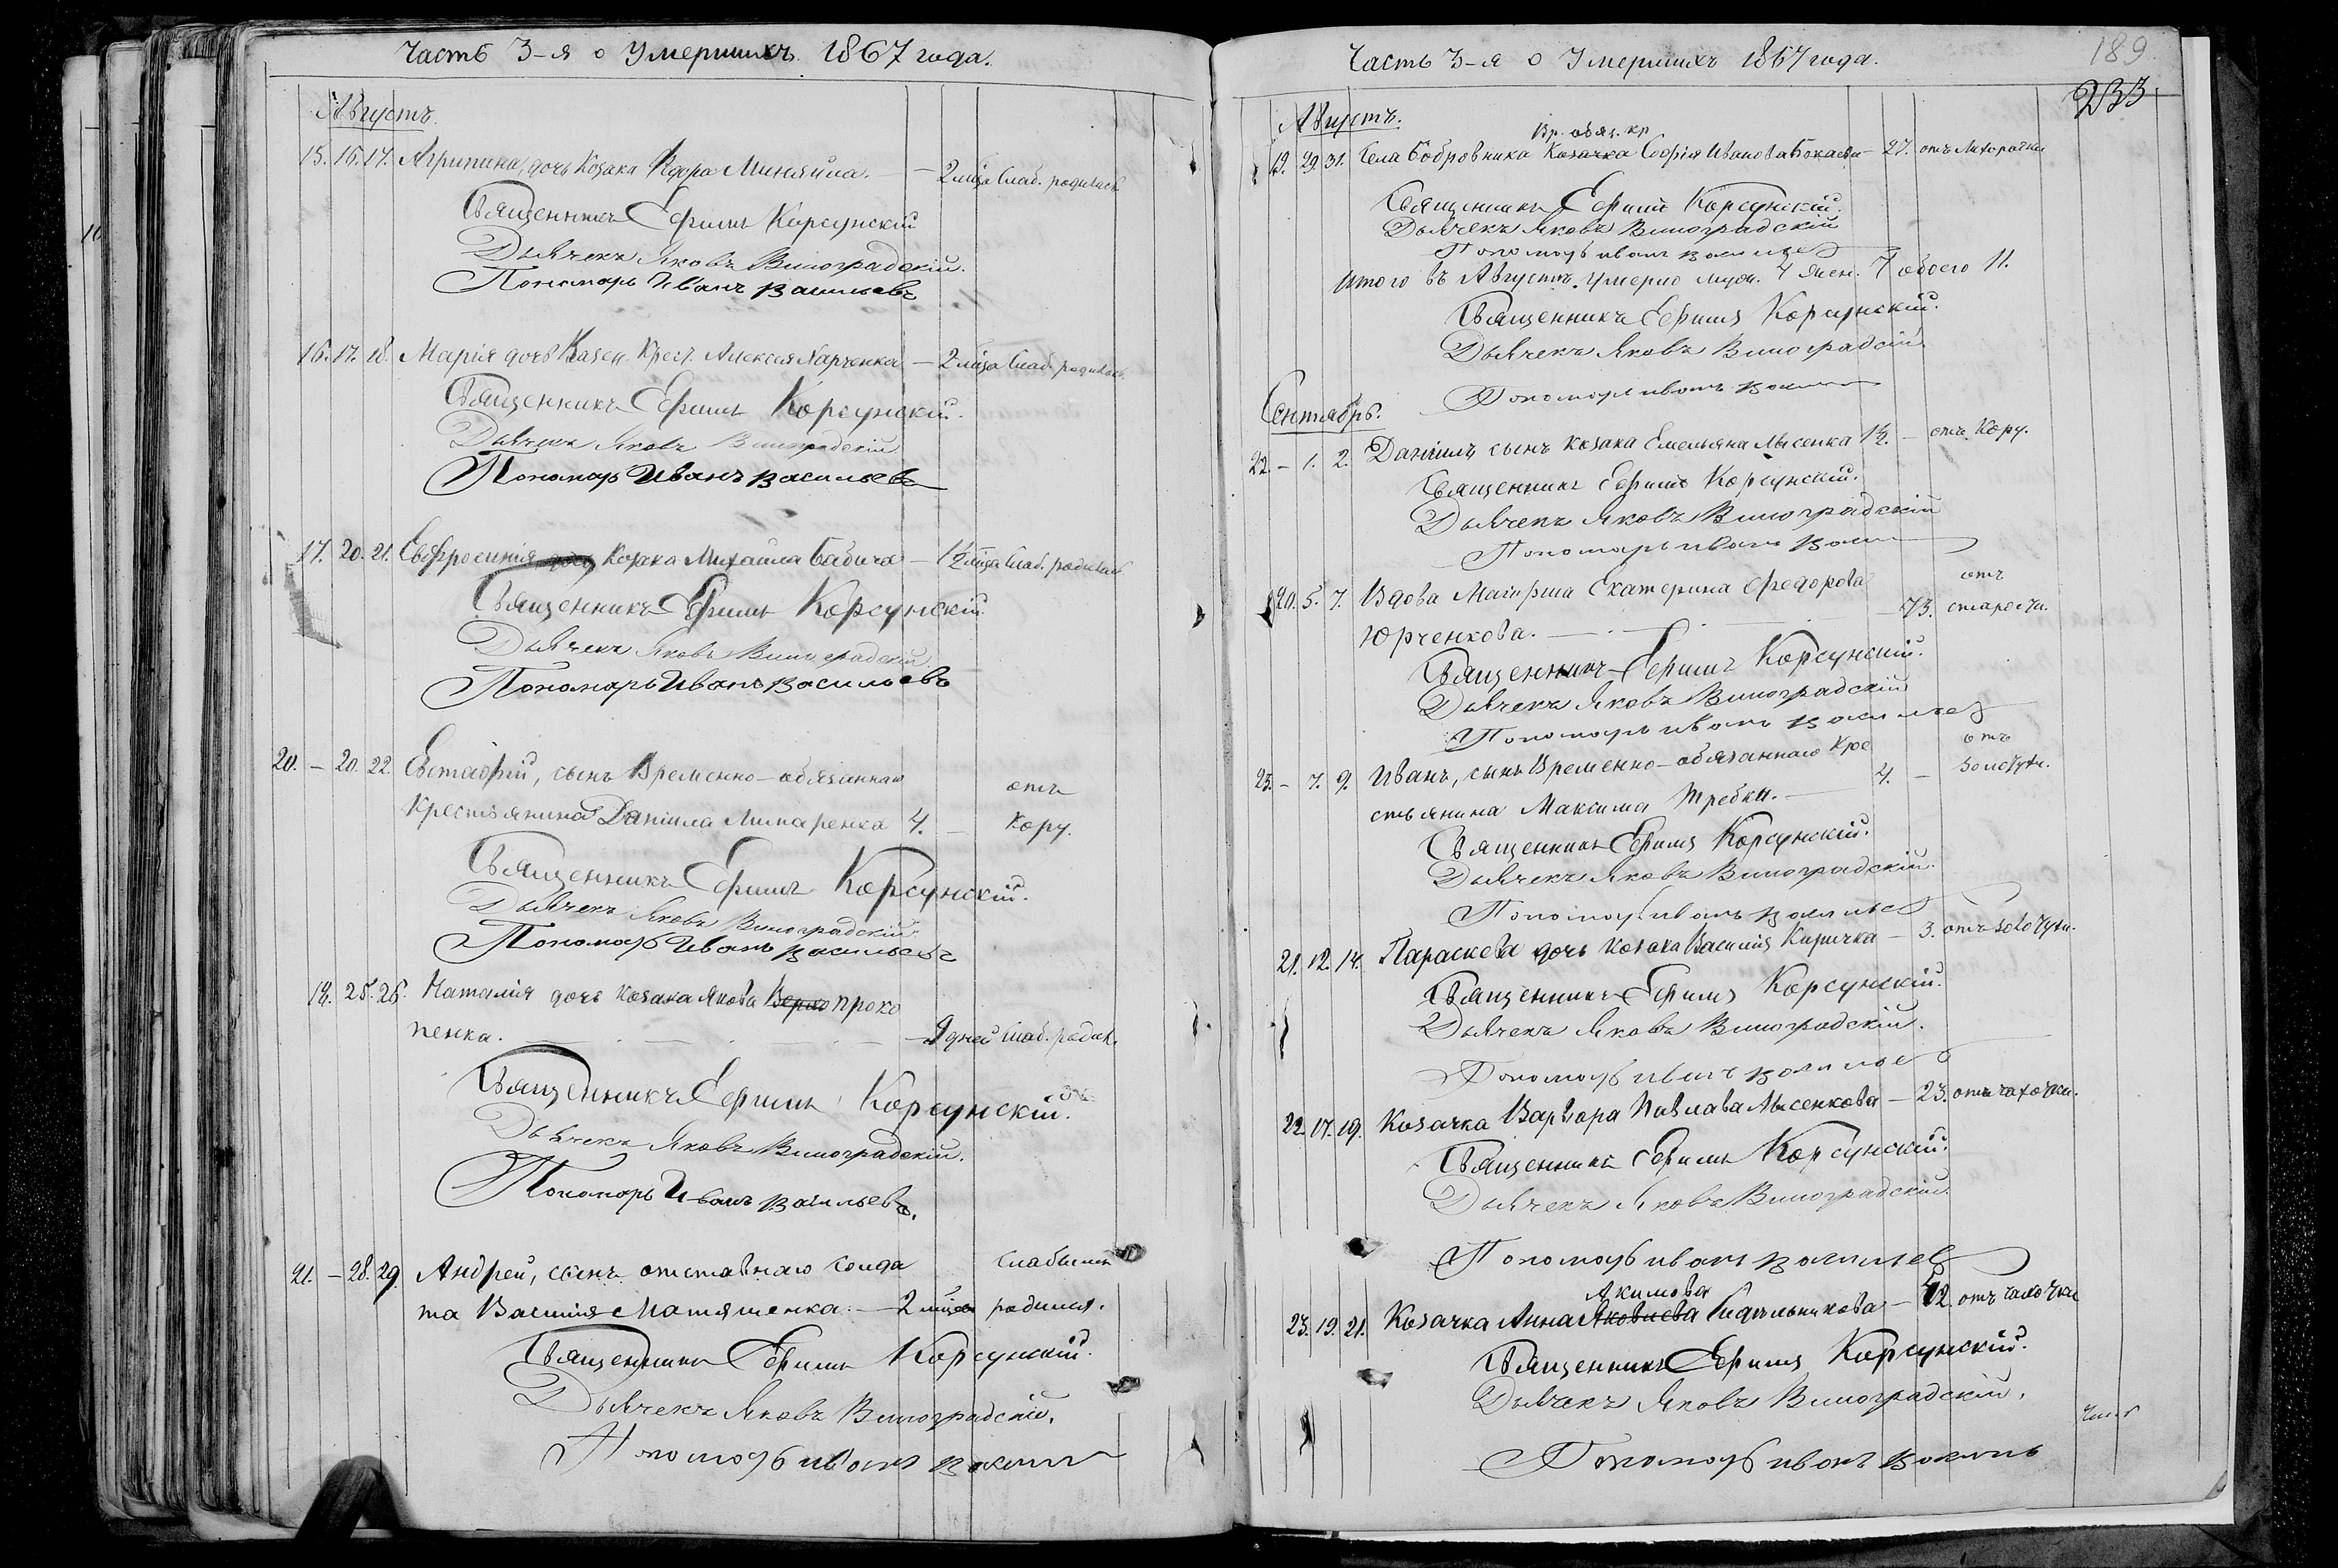 Часть 3-я о Умершихъ. 1867 года.
Августъ.
15. 16. 17. Агрипина, дочь Козака Ѳдора Миняйла. — 2 мѣсяца Слаб. родилась
Священникъ Ефимъ Корсунскій
Дьячекъ Яковъ Виноградскій.
Пономарь Иванъ Васильевъ
16. 17. 18. Марія дочь Казен. Крест. Алексея Харченка — 2 мѣсяца Слаб. родилась.
Священникъ Ефимъ Корсунскій.
Дьячекъ Яковъ Виноградскій
Пономарь Иванъ Васильевъ
17. 20. 21. Евфросинія, дочь Козака Михаила Бабича — 1½ мѣсяца Слаб. родилась
Священникъ Ефимъ Корсунскій.
Дьячекъ Яковъ Виноградскій
Пономарь Иванъ Васильевъ
20. — 20. 22. Евстафій, сынъ Временно-обязаннаго отъ
Крестьянина Даніила Лимаренка 4. — Кору.
Священникъ Ефимъ Корсунскій.
Дьячекъ Яковъ Виноградскій.
Пономарь Иванъ Васильевъ
18. 25. 26. Наталія дочь Козака Якова Проко
пенка. — 9 дней Слаб. родил.
Священникъ Ефимъ Корсунскій.
Дьячекъ Яковъ Виноградскій.
Пономарь Иванъ Васильевъ.
21. — 28. 29. Андрей, сынъ отставнаго Солда Слабымъ
та Василія Матяшенка. — 2 мѣсяц. родился.
Священникъ Ефимъ Корсунскій.
Дьячекъ Яковъ Виноградскій.
Пономарь Иванъ Васил
Часть 3-я о Умершихъ 1867 года.
189
233.
Августъ.
Вр. обяз. кр
19. 29. 31. Села Бобровника Козачка Софія Иванова Бокаева — 27. отъ Лихорадки
Священникъ Ефимъ Корсунскій.
Дьячекъ Яковъ Виноградскій
Пономарь Иванъ Васильев
Итого въ Августѣ умерло муж. 4 жен. 7 обоего 11.
Священникъ Ефимъ Корсунскій.
Дьячекъ Яковъ Виноградскій
Пономарь Иванъ Васил
Сентябрь.
22. — 1. 2. Даніилъ сынъ Козака Емельяна Лысенка 1½. — отъ Кору.
Священникъ Ефимъ Корсунскій.
Дьячекъ Яковъ Виноградскій
Пономарь Иванъ Васил
20. 5. 7. Вдова Екатерина Федорова отъ
Юрченкова. — 73. старости.
Священникъ Ефимъ Корсунскій.
Дьячекъ Яковъ Виноградскій
Пономарь Иванъ Васильев
23. — 7. 9. Иванъ, сынъ Временно-обязаннаго Кре отъ
стьянина Максима Требки. — 4. — Золотухи.
Священникъ Ефимъ Корсунскій.
Дьячекъ Яковъ Виноградскій.
Пономарь Иванъ Васильев
21. 12. 14. Параскева дочь Козака Василія Киричка — 3. отъ Золотухи.
Священникъ Ефимъ Корсунскій.
Дьячекъ Яковъ Виноградскій.
Пономарь Иванъ Васильев
22. 17. 19. Козачка Варвара Павлова Лысенкова — 23. отъ чахотки.
Священникъ Ефимъ Корсунскій.
Дьячекъ Яковъ Виноградскій.
Пономарь Иванъ Васильев
Акимова
23. 19. 21. Козачка Анна Яковлева Сидельникова — 52. отъ чахотки
Священникъ Ефимъ Корсунскій.
Дьячекъ Яковъ Виноградскій.
Пономарь Иванъ Василь